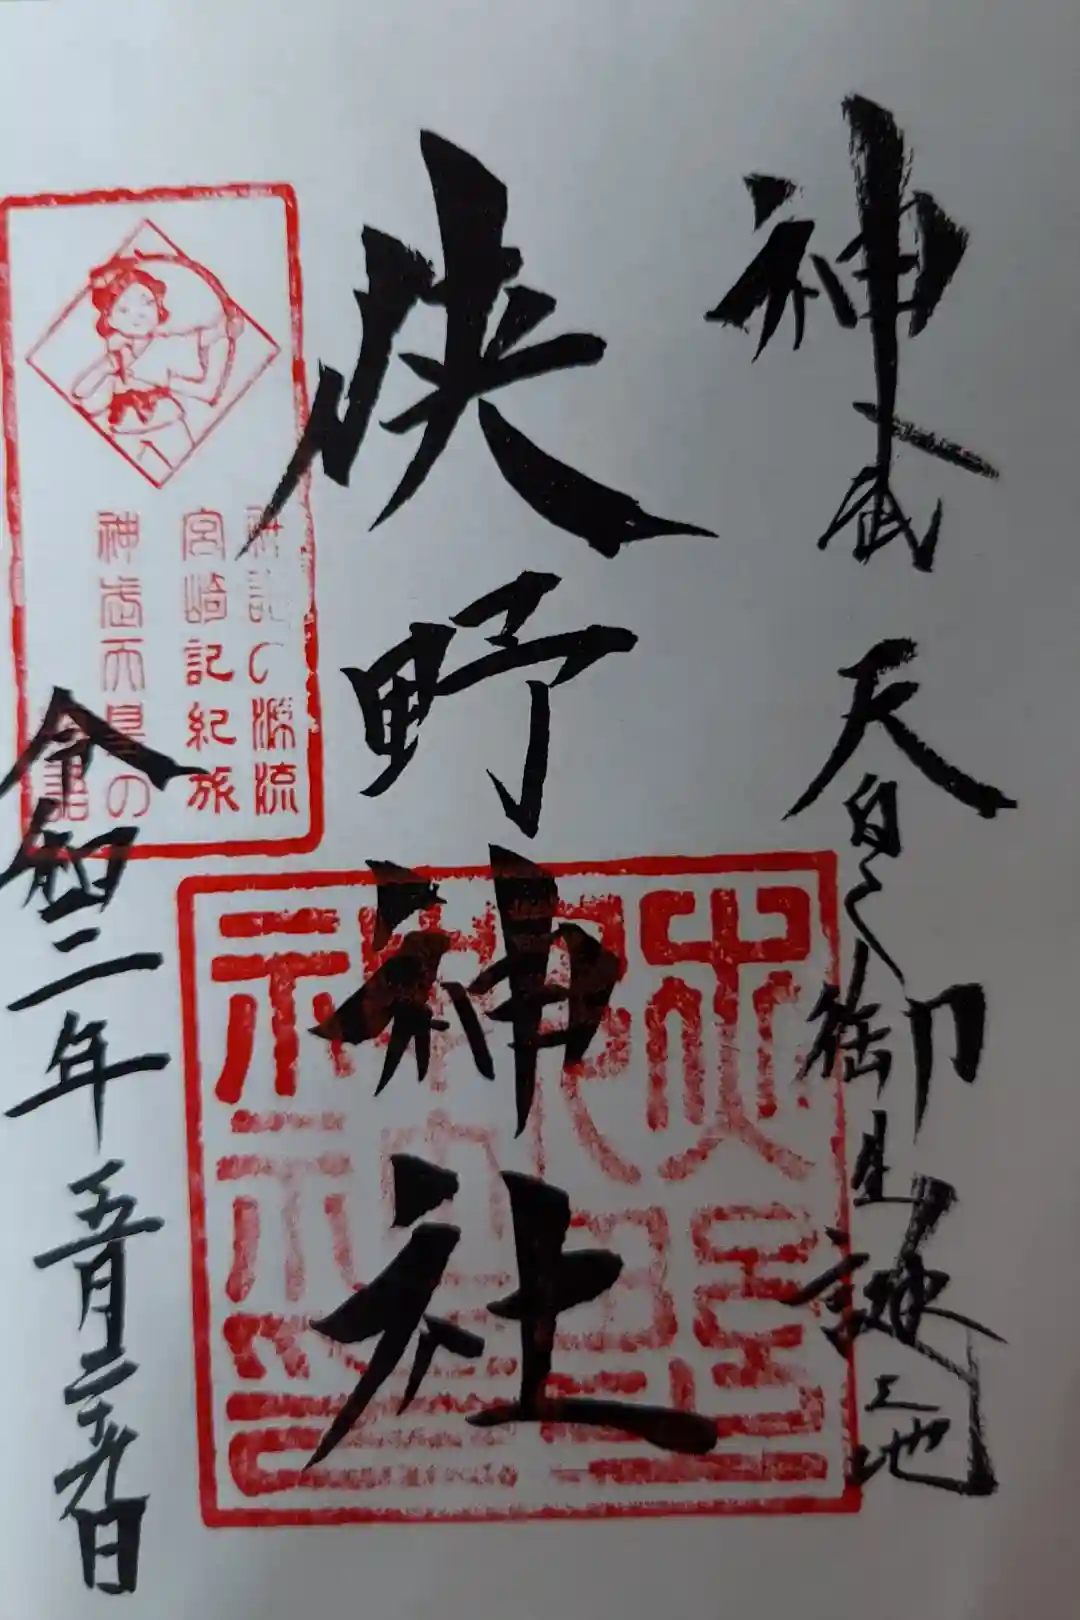 神武天皇之御生誕之地
狭野神社
神話の源流
宮崎記紀旅
神武天皇の
令和二年五月二十九日
狭野神社印